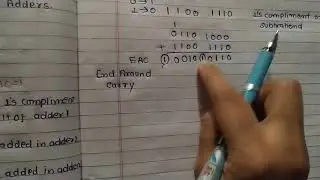 Adders.
1→0 1100 1110
1's compliment o
subtrahend
1
0110 1000
+ 1100 1110
EAC 1 0010 0110
End Around
carry
1's compliment
lt of adder 1
added in adder
added in adder